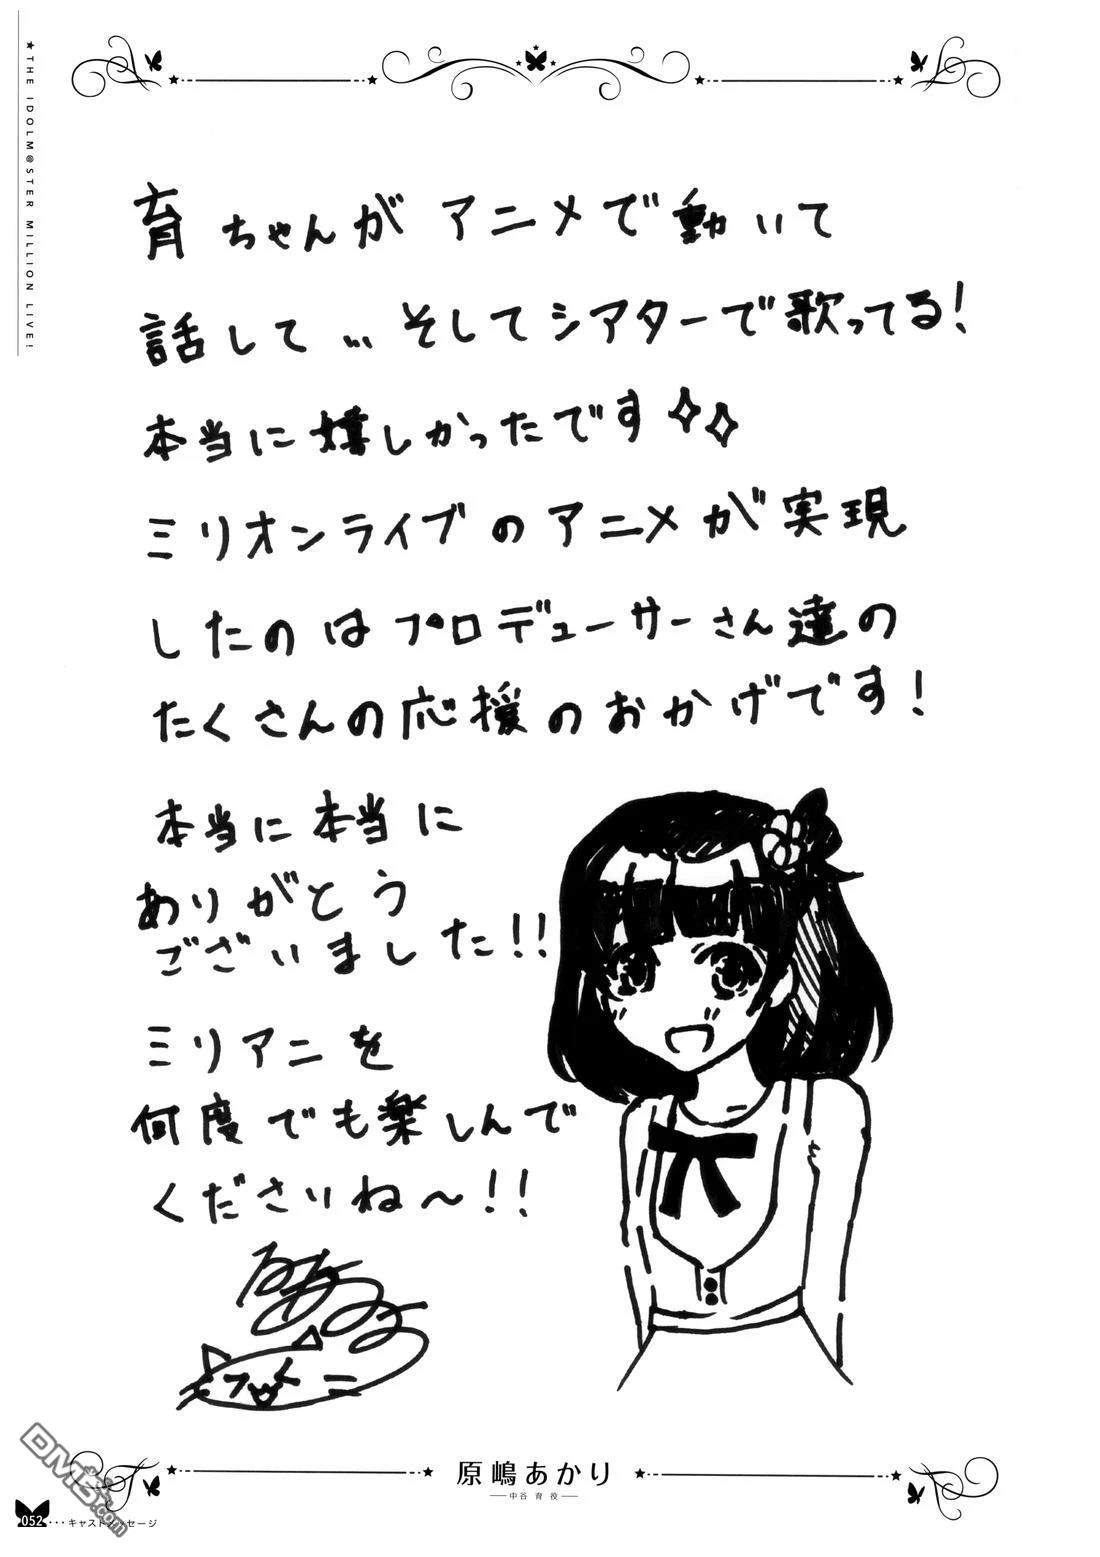 ★THE IDOLM@STER MILLION LIVE!
育ちゃんがアニメで動いて
話して…そしてシアターで歌ってる!
本当に嬉しかったです
ミリオンライブのアニメが実現
したのはプロデューサーさん達の
たくさんの応援のおかげです!
本当に本当に
ありがとう
ございました!!
ミリアニを
何度でも楽しんで
くださいね〜!!
原嶋あかり
中谷 育 役
052 ···キャストメッセージ